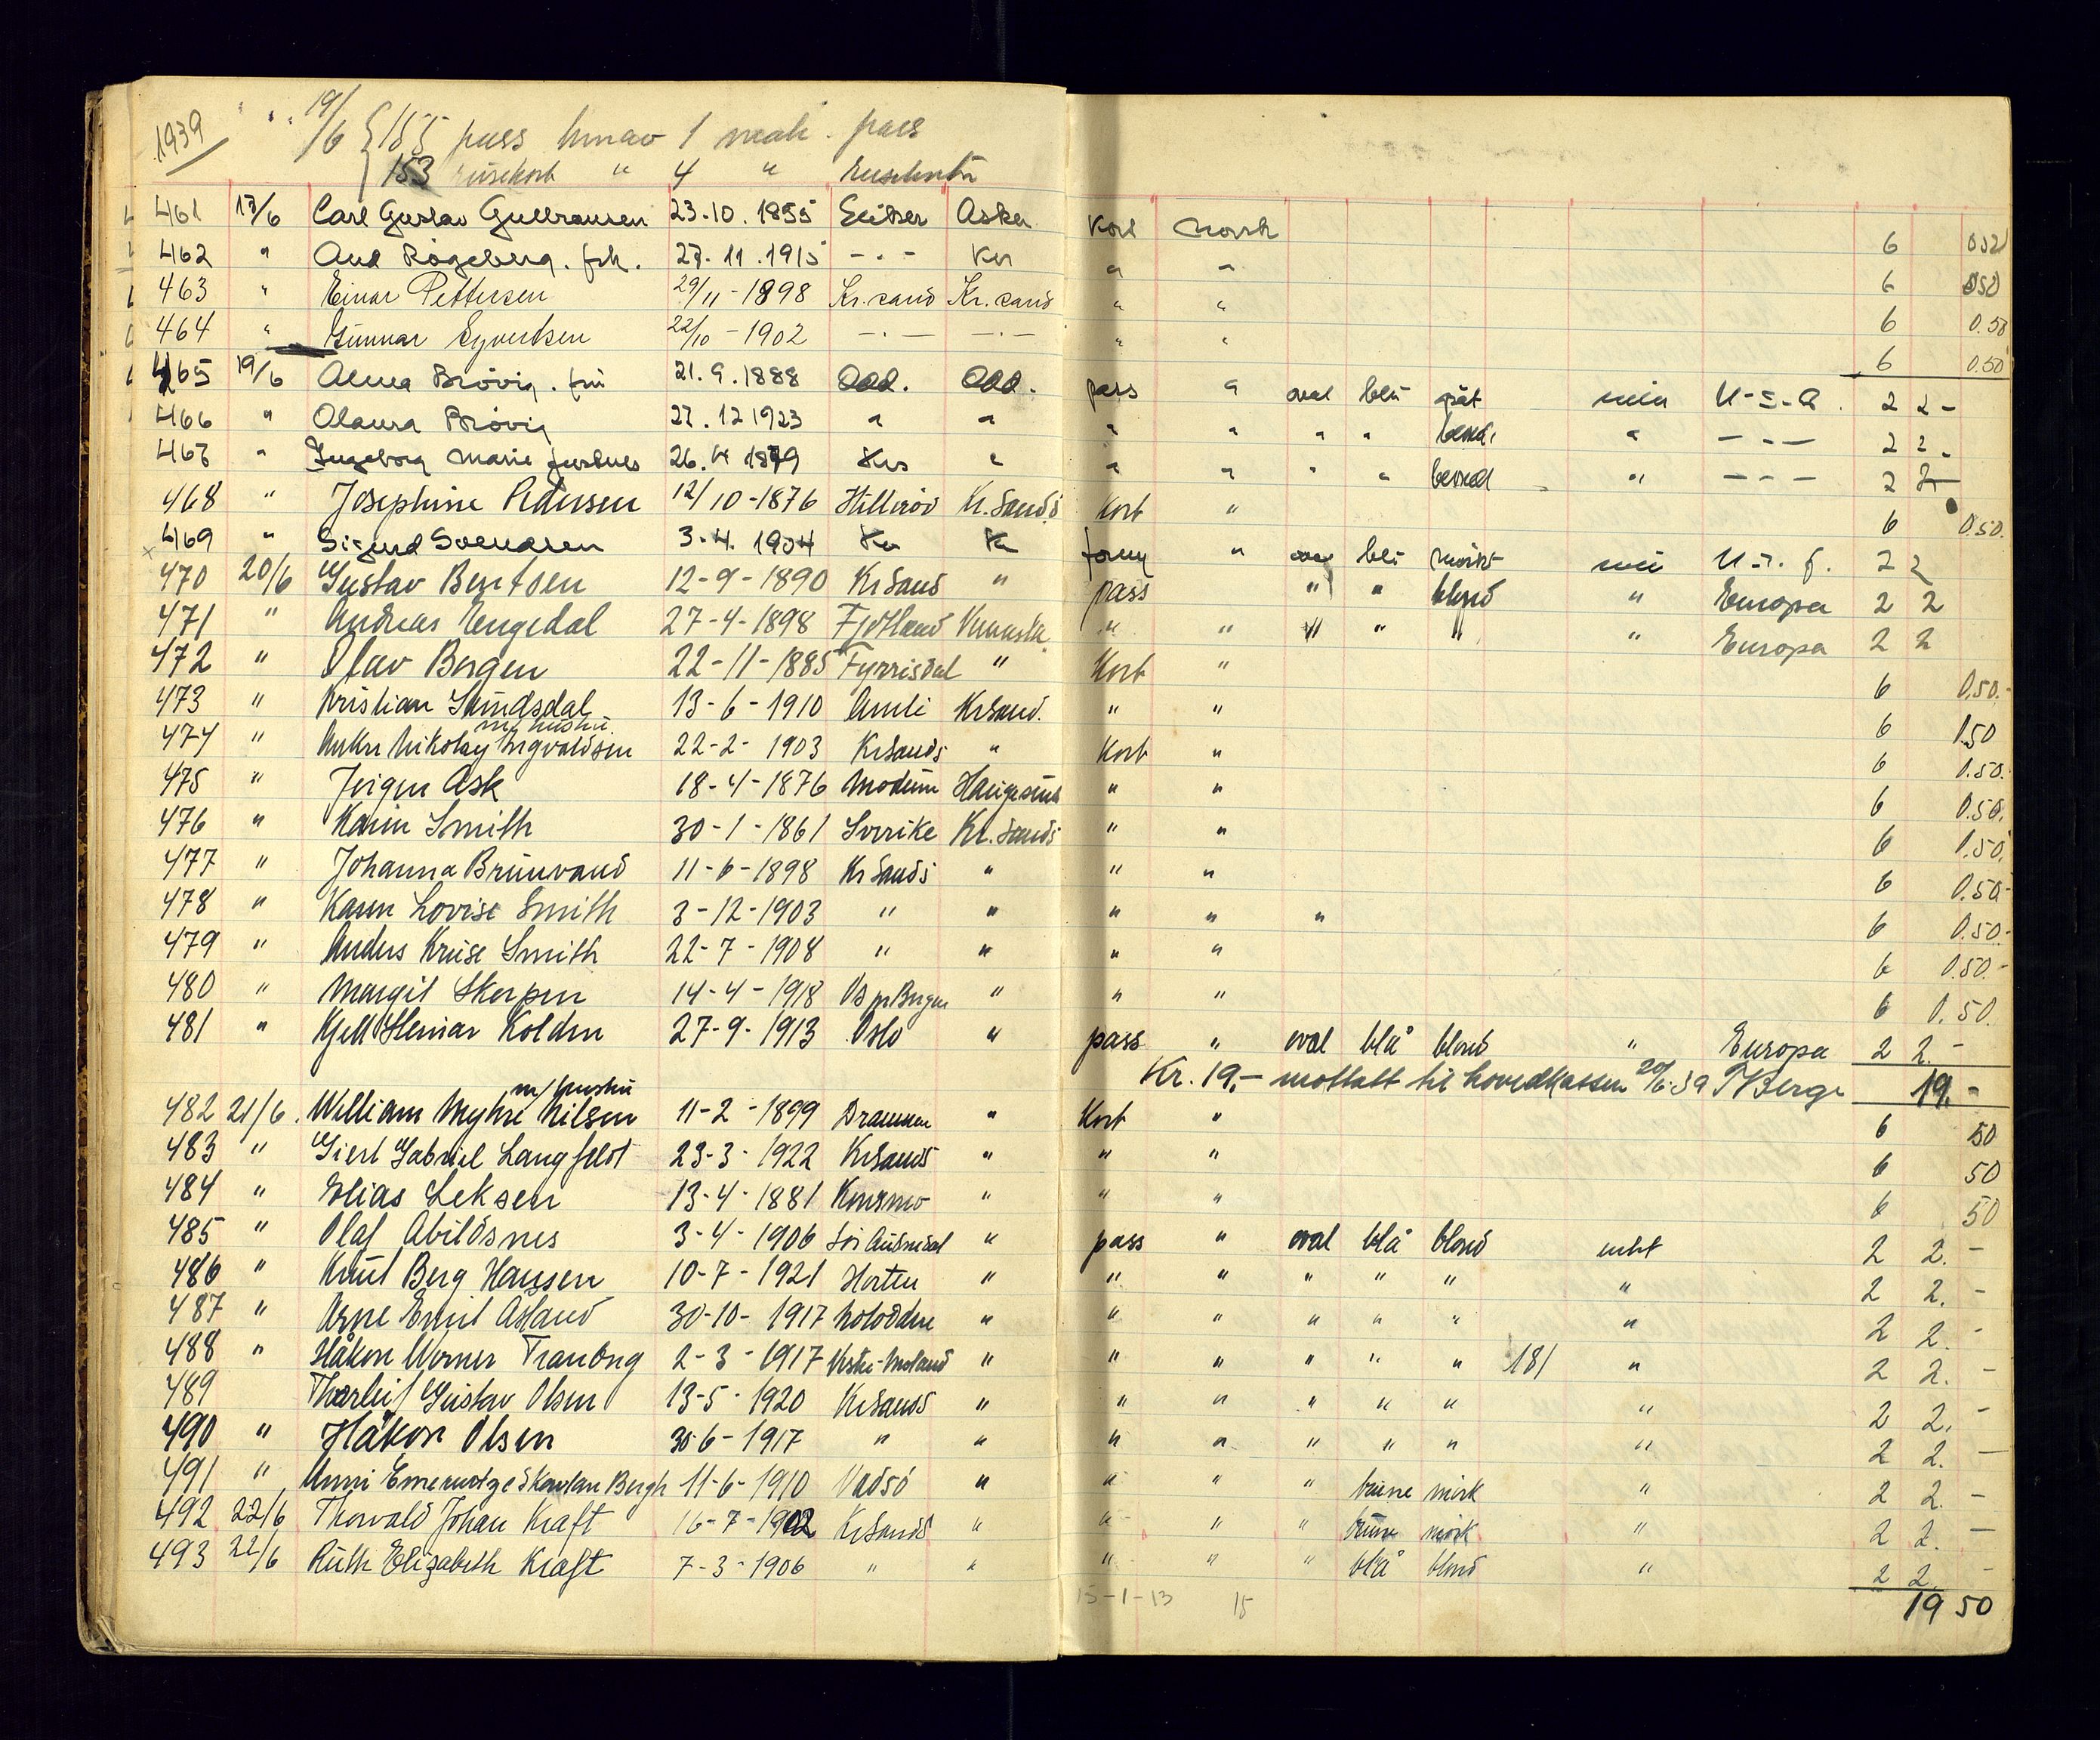 1939 19/6 { 185 pass hvorav 1 pass
153 reisekort " 4 "
461 17/6 Carl Gustav Gulbransen 23-10.1855 Asker Kort norsk 6
462 " Aud Rögeberg. frk. 27.11.1915 - " - Krs " " 6 0.50
463 " Einar Pettersen 29/11-1898 Kr.sand Kr.sand " " 6 0.50
464 " Gunnar Syvertsen 22/10-1902 - " - - " - " " 6 0.50
465 19/6 Alma Brövig. fru 21.9.1888 Odd. Odd. pass " oval blå grått U-S-A. 2 2 -
466 " Olaura Brövig 27.12 1923 " " " " " " " - " - 2 2 -
467 " Ingeborg Marie 26. 1879 Krs " " " " " - " - 2 2
468 " Josephine Pedersen 12/10-1876 Hilleröd Kr.sand S Kort " 6 0.50.
469 " Sigurd Svendsen 3.4.1904 Kr Kr " blå mörkt 2 2
470 20/6 Gustav Berntsen 12-9-1890 KrSand " pass " " blond " Europa 2 2
471 " Andreas Engedal 27-4-1898 Fjotland " " " " " " Europa 2 2
472 " Olav Bergen 22-11-1885 Fyrrisdal " Kort " 6 0.50.-
473 " Kristian Sundsdal 13-6-1910 Amli KrSand. " " 6 0.50
m/ hustru.
474 " Nikolay Ingvaldsen 22-2-1903 KrSand S " Kort " 6 0.50.-
475 " Jörgen Ask 18-4-1876 Modum Haugesund " " 6 0.50.
476 " Karin Smith 30-1-1861 Sverike Kr.Sand S " " 6 0.50.
477 " Johanna Brunvand 11-6-1898 KrSand S " " " 6 0.50-
478 " Karin Lovise Smith 3-12-1903 " " " " " 6 0.50.-
479 " Anders Kruse Smith 22-7-1908 " " " " 6 0.50.-
480 " Margit Skorpen 14-4-1918 Os pr Bergen " " " 6 0.50.
481 " Kjell Steinar Koldin 27-9-1913 Oslo " pass " oval blå blond " Europa 2 2.-
Kr. 19,- mottatt til hovedkassen 20/6-39 TBerge 19.-
m/ hustru
482 21/6. William Myhre Nilsen 11-2-1899 Drammen " Kort " 6 50
483 " Giert Gabriel Langfeldt 23-3-1922 KrSand S " " " 6 50
484 " Elias Leksen 13-4-1881 " " " 6 50
485 " Olaf Abildsnes 3-4-1906 Sör Audnedal " pass " oval blå blond intet 2 2.-
486 " Knut Berg Hanssen 10-7-1921 Horten " " " " " " " 2 2.-
487 " Arne Emil Asland 30-10-1917 Notodden " " " " " " " 2 2.-
488 " Håkon Werner Tranong 2-3-1917 " " " " " " 181 " 2 2.-
489 Thorleif Gustav Olsen 13-5-1920 KrSand S " " " " " " " 2 2.-
490 " Håkon Olsen 30-6-1917 " " " " " " " " 2 2.-
491 " Anni Bergh 11-6-1910 Vadsö " " " " brune mörk " 2 2.-
492 22/6 Thorvald Johan Kraft 16-7-1902 KrSand S " " " " brune mörk " 2 2.-
493 22/6 Ruth Elizabeth Kraft 7-3-1906 " " " " " blå blond " 2 2.-
15-1-13 15 19 50